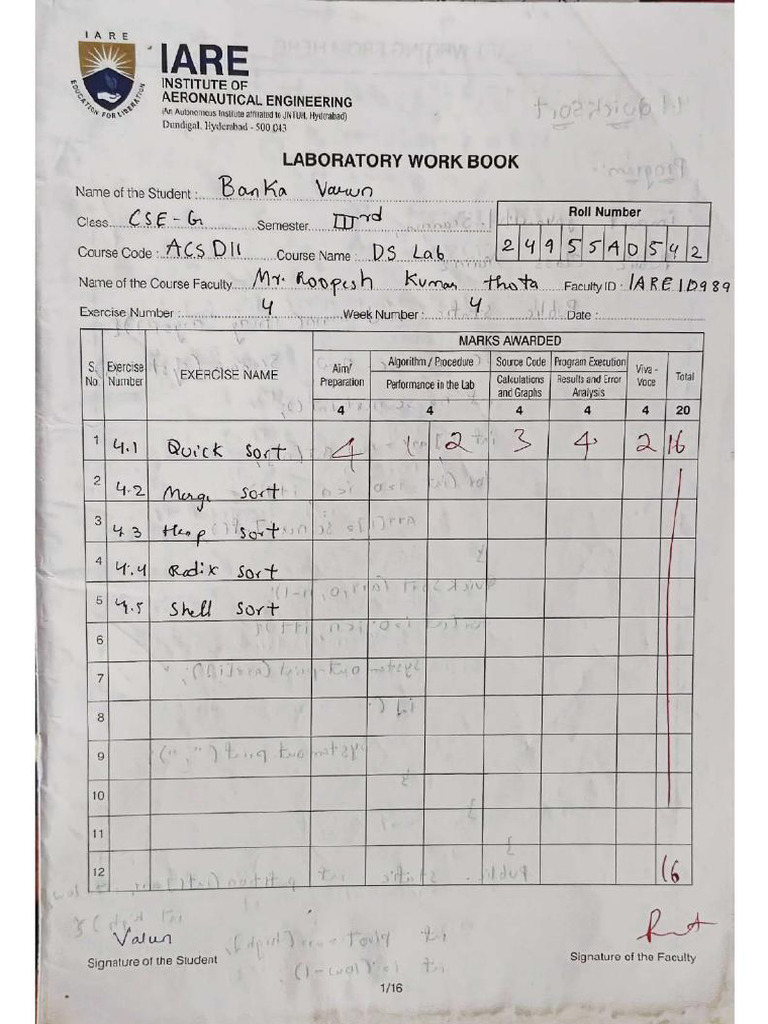 IARE
EDUCATION FOR LIBERATION
IARE
INSTITUTE OF
AERONAUTICAL ENGINEERING
(An Autonomous Institute affiliated to JNTUH, Hyderabad)
Dundigal, Hyderabad - 500 043
LABORATORY WORK BOOK
Name of the Student : Banka Varun
Class CSE-G Semester IIIrd Roll Number
Course Code : ACSD11 Course Name : DS Lab 24955A0542
Name of the Course Faculty Mr. Roopesh Kumar thota Faculty ID : IARE10989
Exercise Number : 4 Week Number : 4 Date :
MARKS AWARDED
S. No. Exercise Number EXERCISE NAME Aim/ Preparation Algorithm / Procedure Source Code Program Execution Viva - Voce Total
Performance in the Lab Calculations and Graphs Results and Error Analysis
4 4 4 4 4 20
1 4.1 Quick sort 4 1 2 3 4 2 16
2 4.2 Merge sort
3 4.3 Heap sort
4 4.4 Radix sort
5 4.5 Shell sort
6
7
8
9
10
11
12 16
Varun
Signature of the Student Signature of the Faculty
1/16